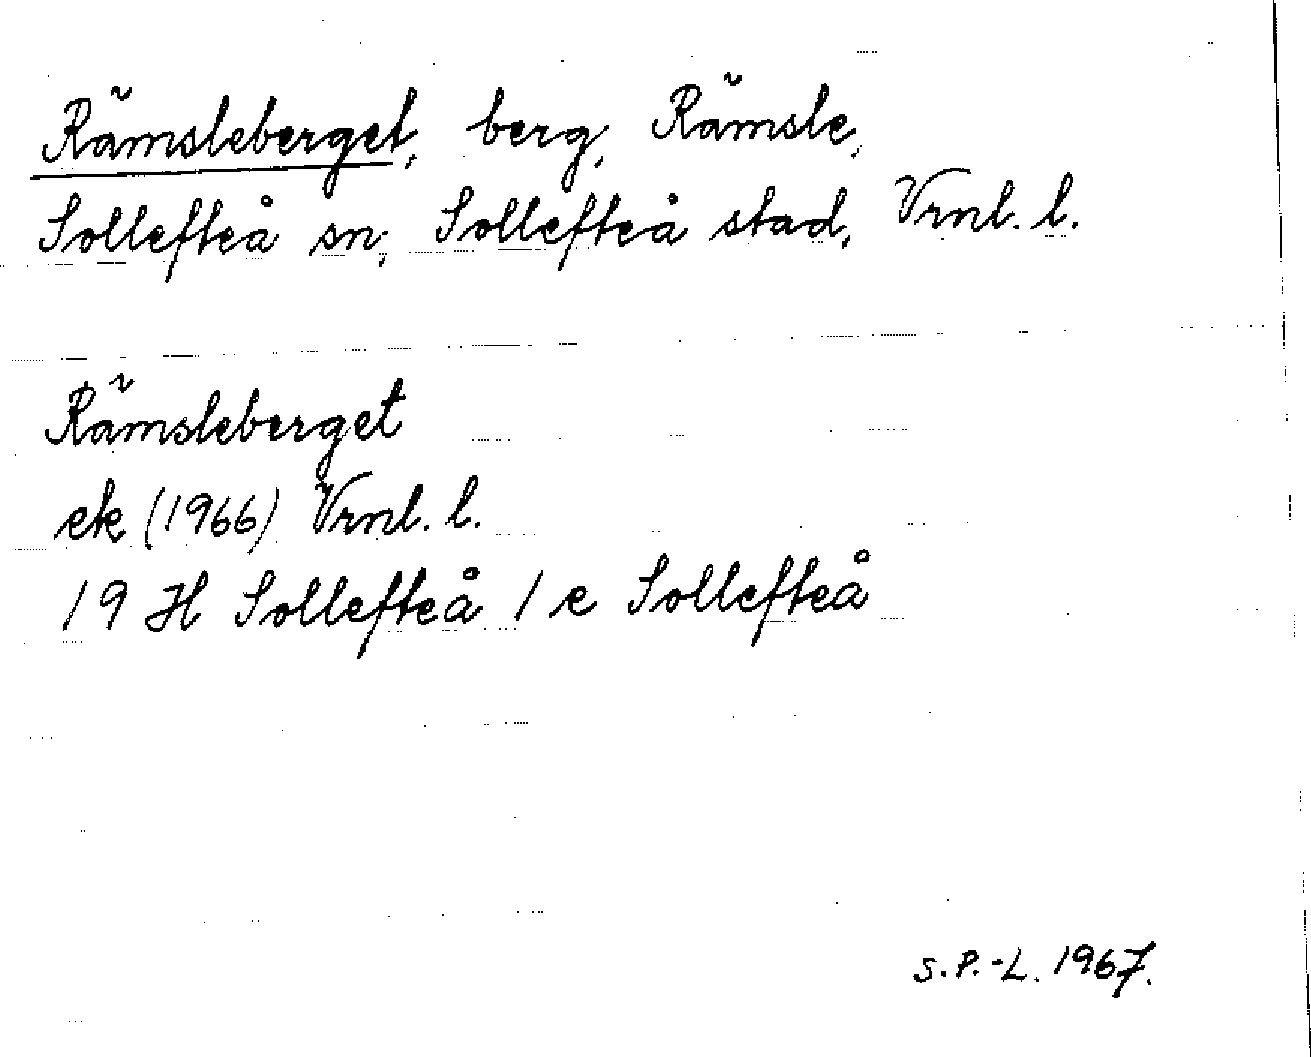 Rämsleberget, berg, Rämsle,
Sollefteå sn, Sollefteå stad, Vrnl. l.
Rämsleberget
ek (1966) Vrnl. l.
19 H Sollefteå 1 e Sollefteå
S.P.-L. 1967.